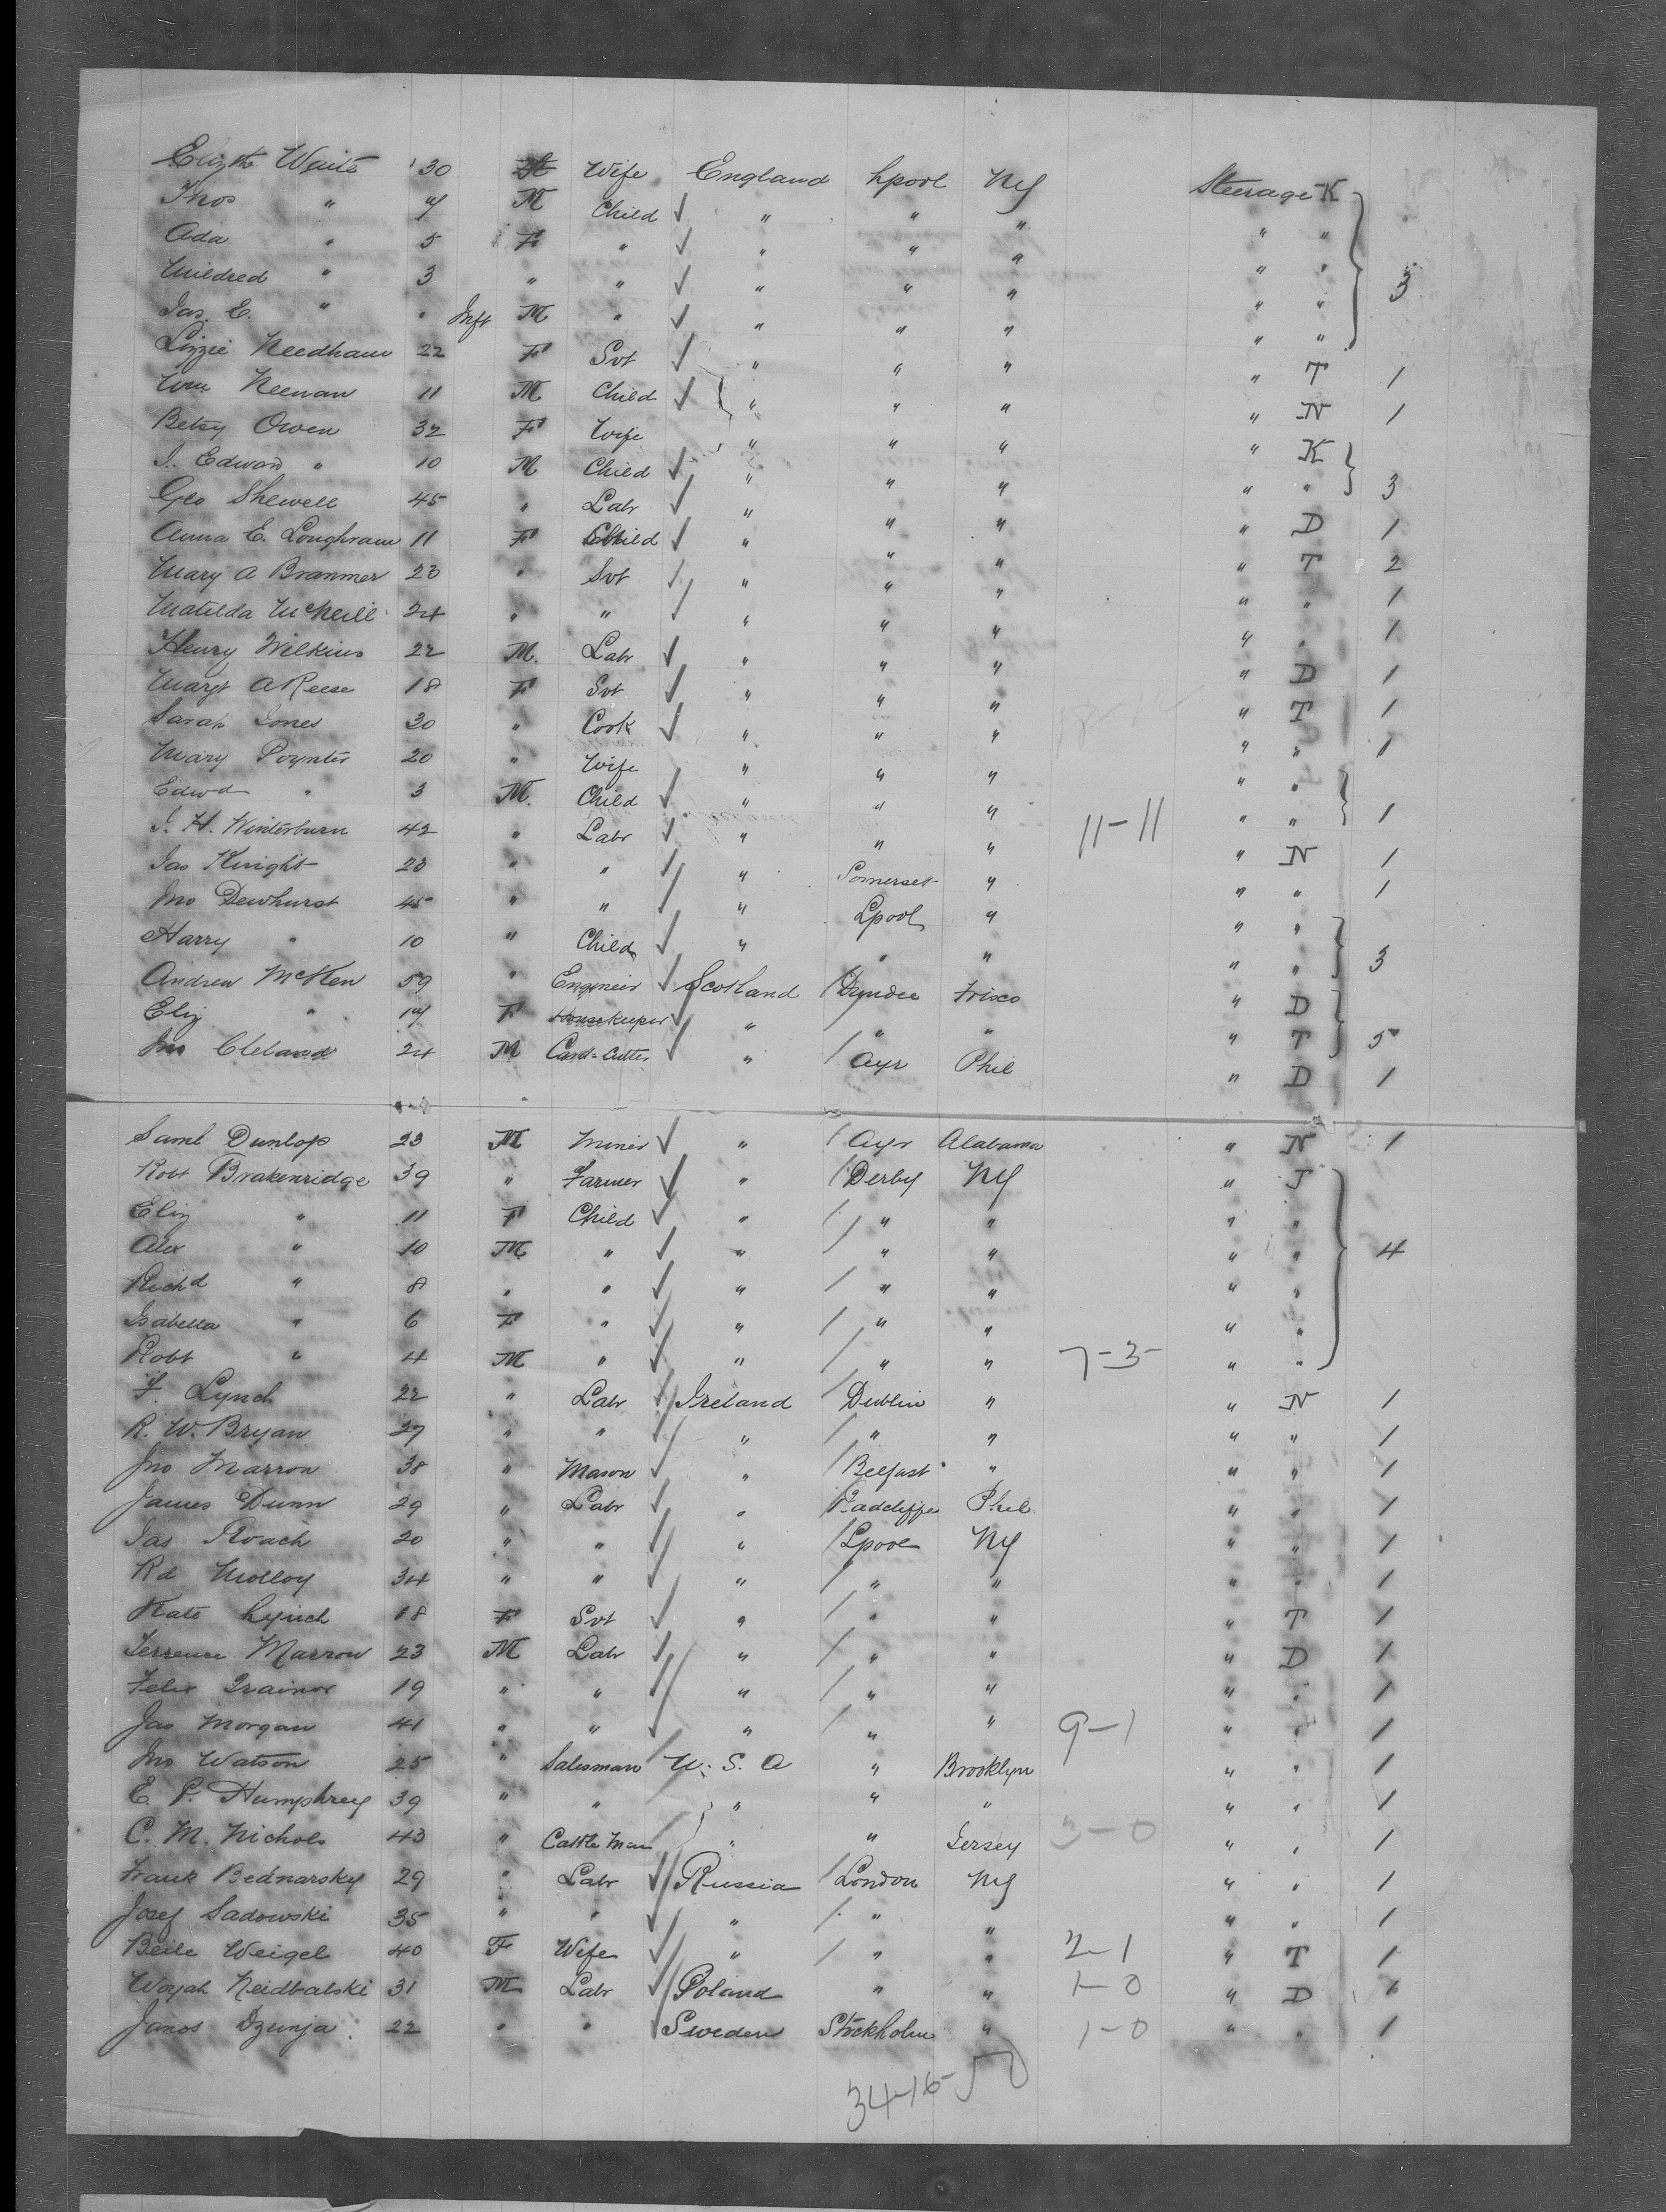 Elizth Waite 30 Wife England Lpool NY Steerage K
Thos " 7 M Child " " " " "
Ada " 5 F " " " " " "
Mildred " 3 " " " " " " " 3
Jas. E. " " Inft M " " " " " "
Lizzie Needham 22 F Svt " " " " T 1
Wm Keenan 11 M Child " " " " N 1
Betsy Owen 32 F Wife " " " " K
J. Edward " 10 M Child " " " " " 3
Geo Shewell 45 " Labr " " " " D 1
Anna E. Loughram 11 F Child " " " " T 2
Mary A Branmer 23 " Svt " " " " " 1
Matilda McNeill 24 " " " " " " " 1
Henry Wilkins 22 M. Labr " " " " D 1
Margt A Reese 18 F Svt " " " " T 1
Sarah Jones 30 " Cook " " " " " 1
Mary Poynter 20 " Wife " " " " "
Edwd " 3 M. Child " " " " " 1
J. H. Winterburn 42 " Labr " " " 11-11 " N 1
Jas Knight 23 " " " Somerset " " " 1
Jno Dewhurst 45 " " " Lpool " " "
Harry " 10 " Child " " " " " 3
Andrew McKen 59 " Engineer Scotland Dundee Frisco " D
Eliz " 17 F Housekeeper " " " " T 5
Jno Cleland 24 M Card-Cutter " Ayr Phil " D 1
Saml Dunlop 23 M Miner " Ayr Alabama " N 1
Robt Brakenridge 39 " Farmer " Derby NY " J
Eliz " 11 F Child " " " " "
Alex " 10 M " " " " " " 4
Richd " 8 " " " " " " "
Isabella " 6 F " " " " " "
Robt " 4 M " " " " 7-3- " "
F. Lynch 22 " Labr Ireland Dublin " " N 1
R. W. Bryan 27 " " " " " " " 1
Jno Marron 38 " Mason " Belfast " " " 1
James Dunn 29 " Labr " Radcliffe Phil " " 1
Jas Roach 20 " " " Lpool NY " " 1
Rd Molloy 34 " " " " " " " 1
Kate Lynch 18 F Svt " " " " T 1
Terrence Marron 23 M Labr " " " " D 1
Felix Trainor 19 " " " " " " " 1
Jas Morgan 41 " " " " " 9-1 " " 1
Jno Watson 25 " Salesman U. S. A " Brooklyn " " 1
E. P. Humphrey 39 " " " " " " " 1
C. M. Nichols 43 " Cattle Man " " Jersey 3-0 " " 1
Frank Bednarsky 29 " Labr Russia London NY " " 1
Josef Sadowski 35 " " " " " " " 1
Beile Weigel 40 F Wife " " " 2-1 " T 1
Woyah Neidbalski 31 M Labr Poland " " 1-0 " D 1
Janos Dzunja 22 " " Sweden Stockholm " 1-0 " " 1
34-16-50